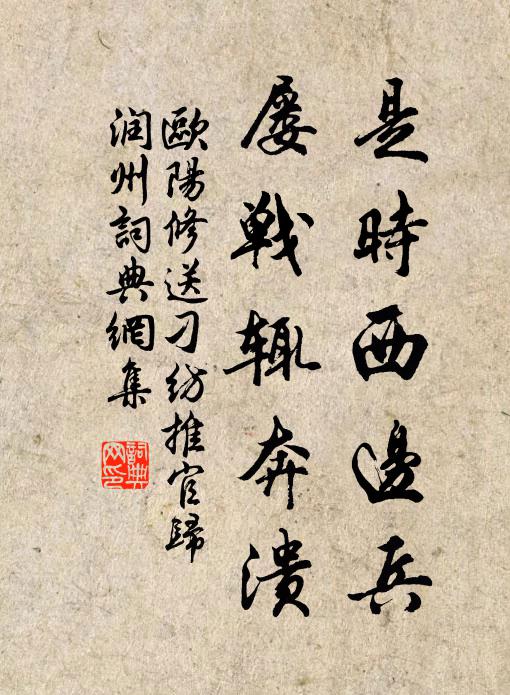 是時西邊兵
屢戰辄奔潰
歐陽修送刁紡推官歸
润州詞典網集
詞典网印